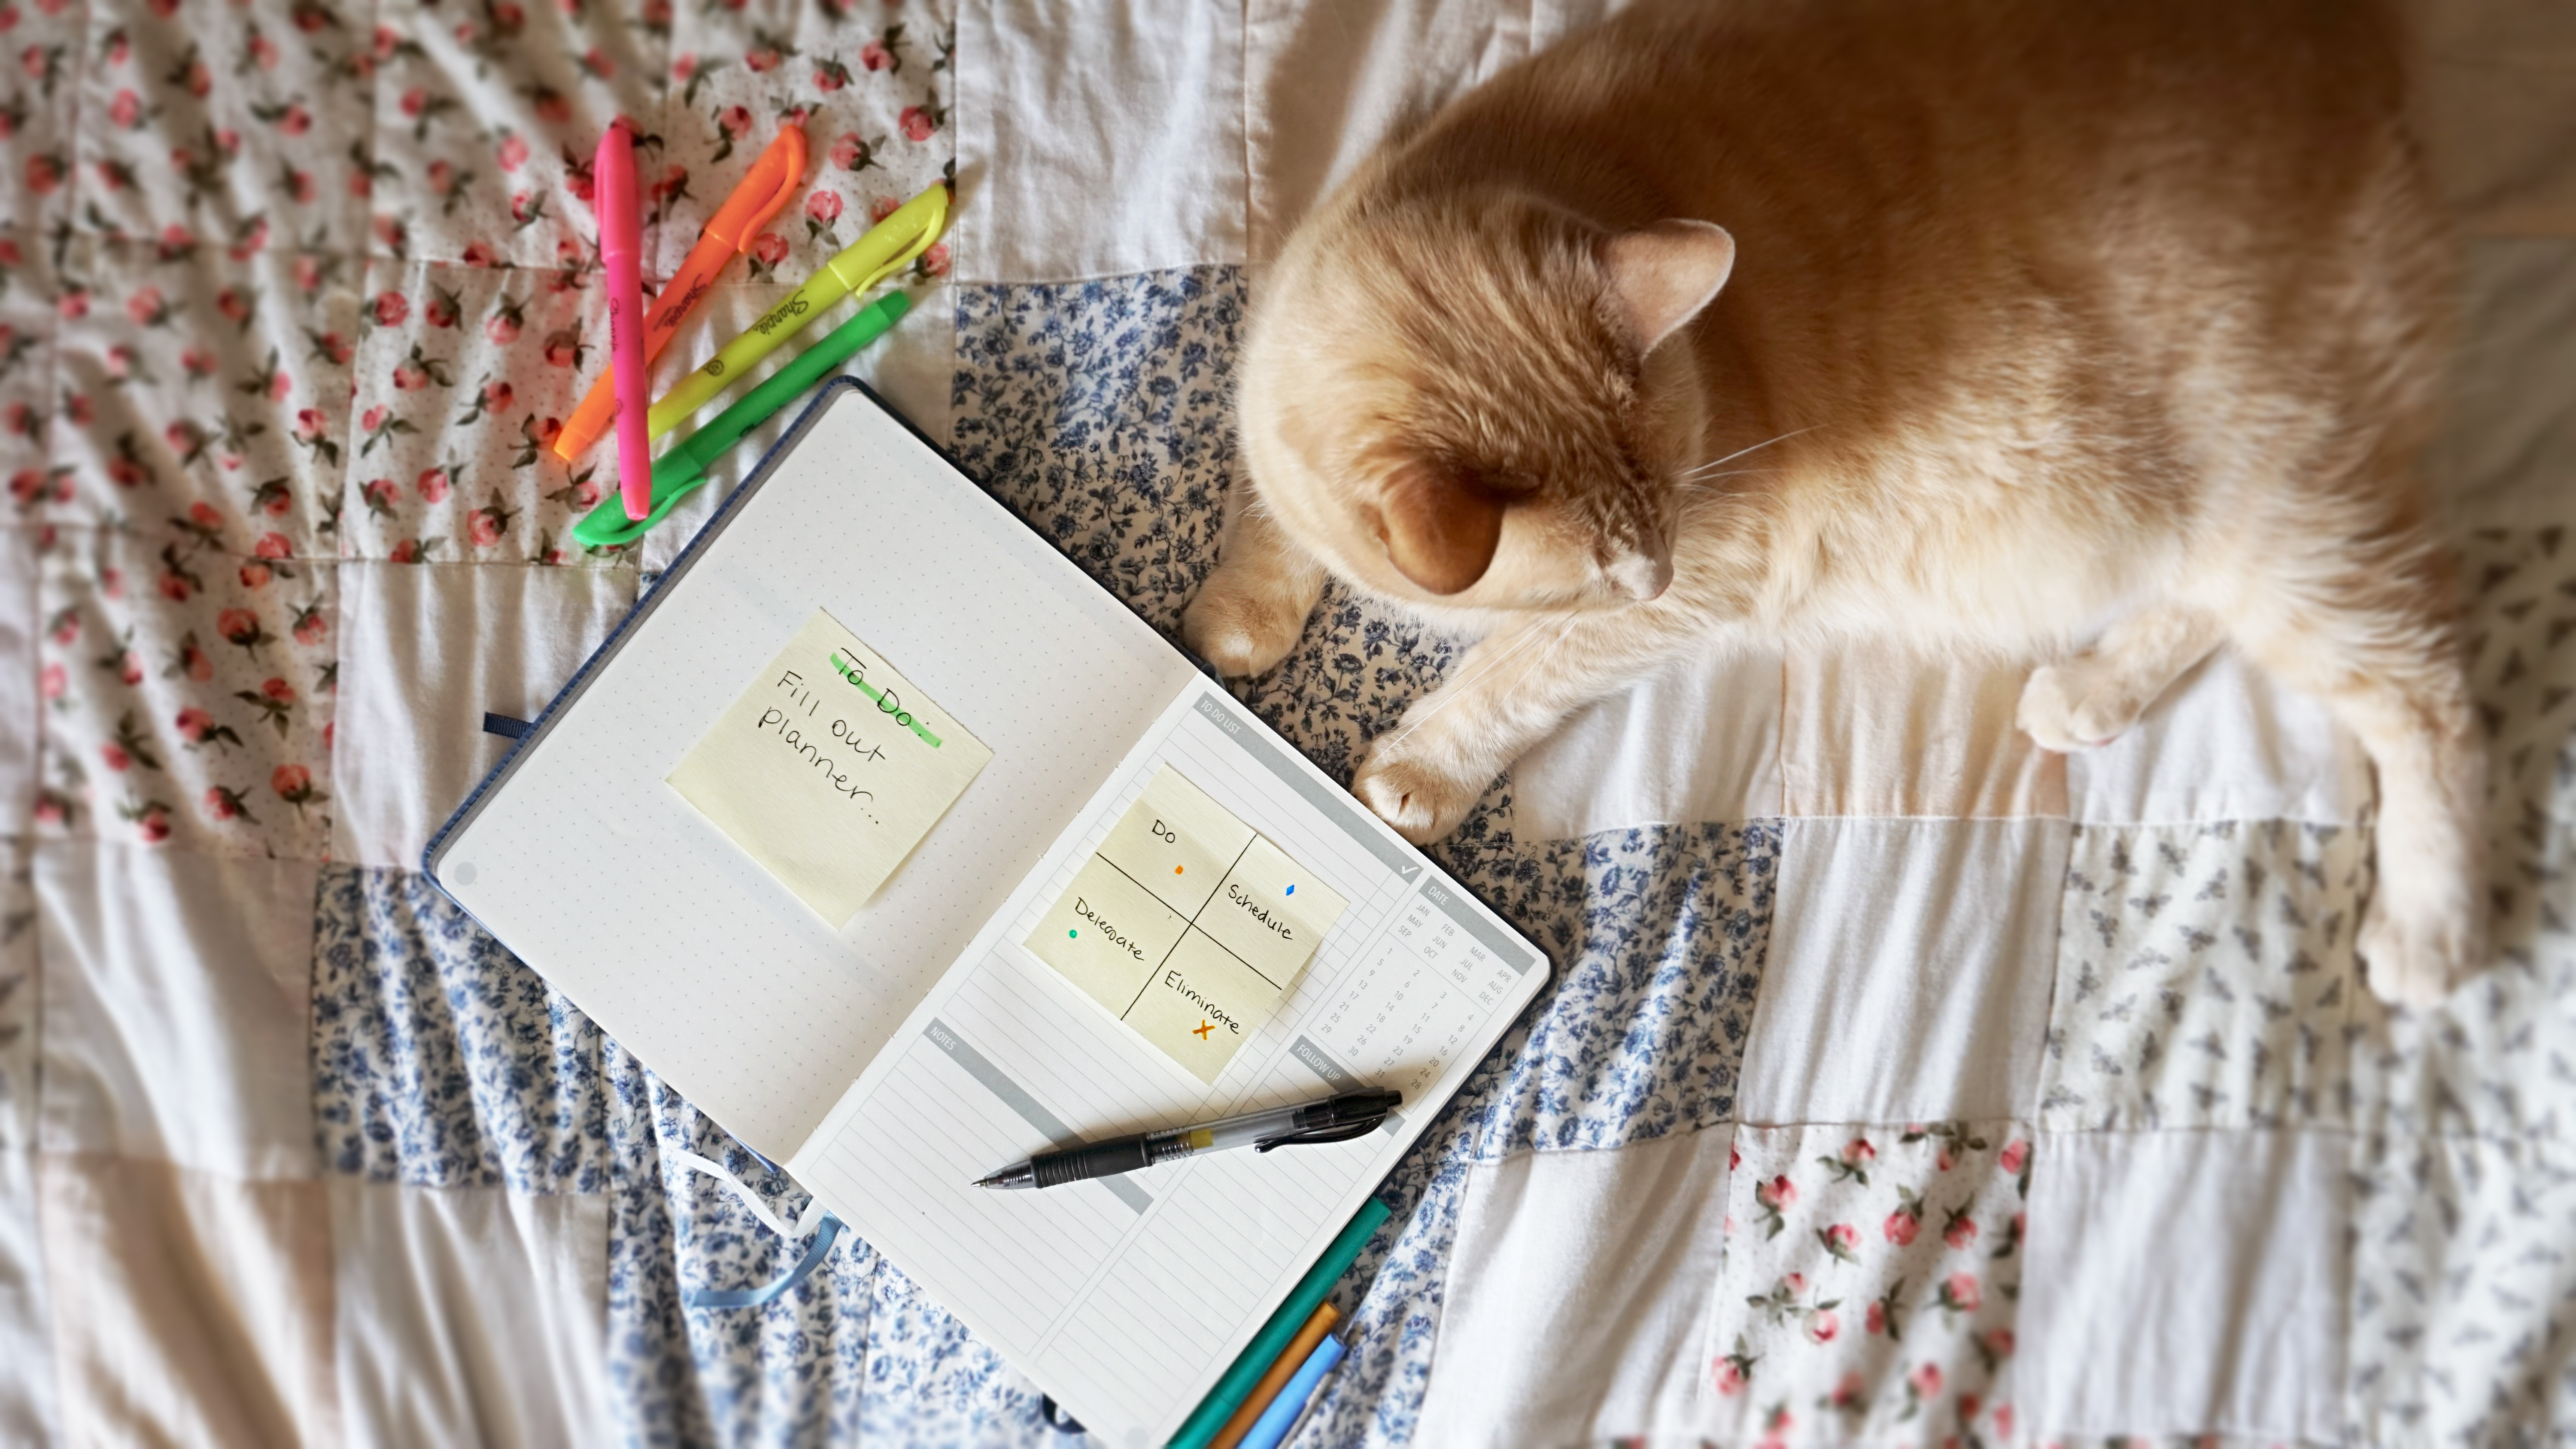 Sharpie
Sharpie
Sharpie
To Do:
Fill out
planner...
TO DO LIST
Do
Schedule
Delegate
Eliminate
DATE
JAN FEB MAR APR
MAY JUN JUL AUG
SEP OCT NOV DEC
1 2 3 4
5 6 7 8
9 10 11 12
13 14 15 16
17 18 19 20
21 22 23 24
25 26 27 28
29 30 31
FOLLOW UP
NOTES